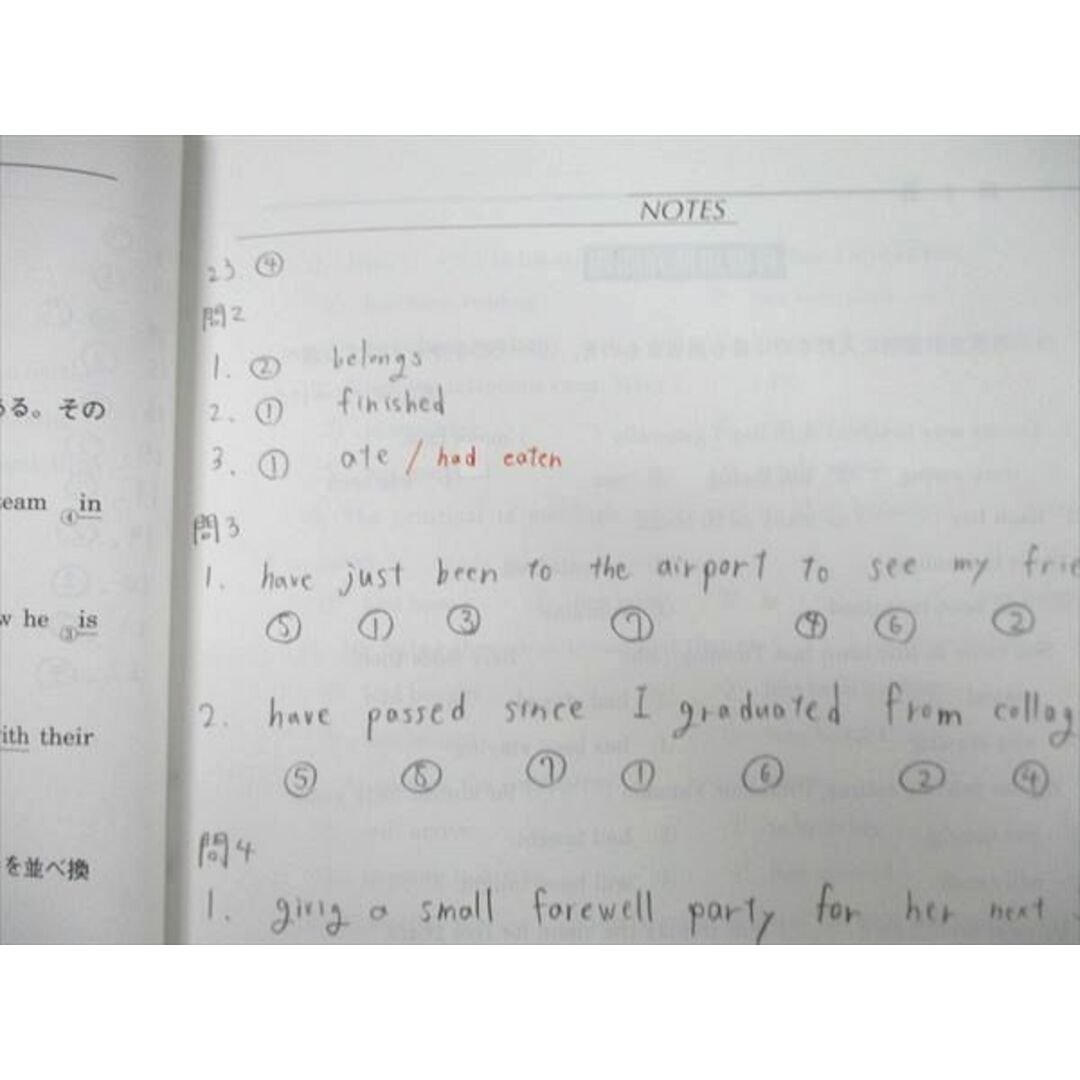 NOTES
23. ④
問2
1. ② belongs
2. ① finished
3. ① ate / had eaten
問3
1. have just been to the airport to see my frie
⑤ ① ③ ⑦ ④ ⑥ ②
2. have passed since I graduated from collag
⑤ ⑧ ⑦ ① ⑥ ② ④
問4
1. givig a small farewell party for her next
る。その
eam ④in
w he ③is
ith their
を並べ換